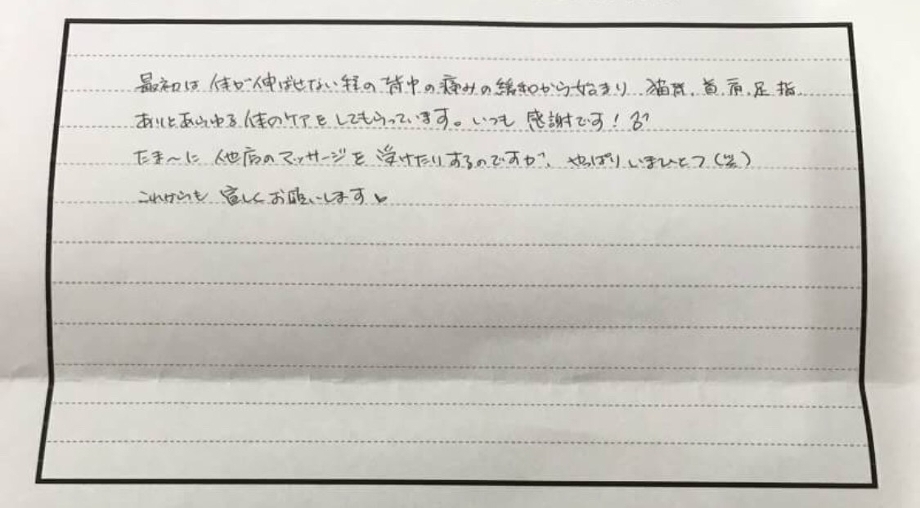 最初は体が伸ばせない程の背中の痛みの緩和から始まり、猫背、首、肩、足、指、
ありとあらゆる体のケアをしてもらっています。いつも感謝です!
たま〜に他店のマッサージを受けたりするのですが、やっぱりいまひとつ(笑)
これからも宜しくお願いします♥